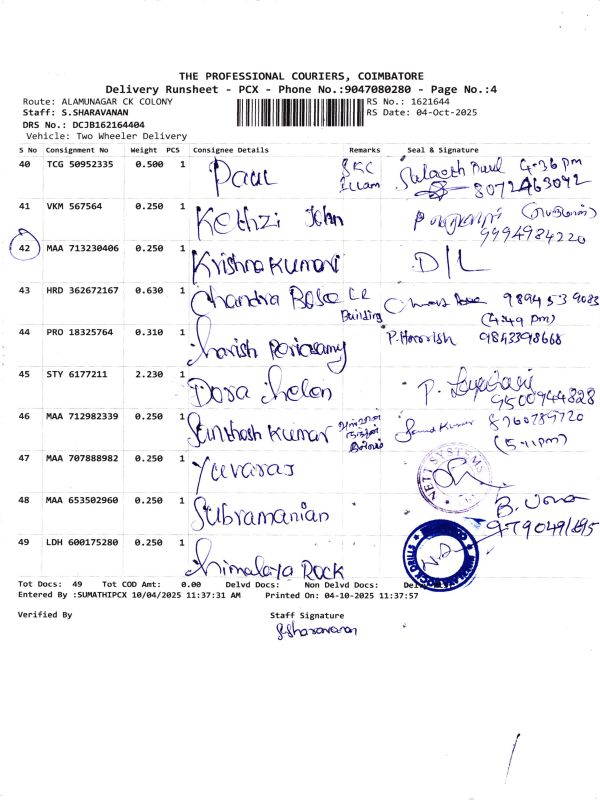 THE PROFESSIONAL COURIERS, COIMBATORE
Delivery Runsheet - PCX - Phone No.:9047080280 - Page No.:4
Route: ALAMUNAGAR CK COLONY RS No.: 1621644
Staff: S.SHARAVANAN RS Date: 04-Oct-2025
DRS No.: DCJB162164404
Vehicle: Two Wheeler Delivery
S No Consignment No Weight PCS Consignee Details Remarks Seal & Signature
40 TCG 50952335 0.500 1 Paul SKC Illam 4-36 pm
8072463092
41 VKM 567564 0.250 1 Kethzi John
9994984220
42 MAA 713230406 0.250 1 Krishna Kumari D/L
43 HRD 362672167 0.630 1 Chandra Bose LR Building 9894539083
(4:49 pm)
44 PRO 18325764 0.310 1 Harish Periasamy P. Harrish 9843398668
45 STY 6177211 2.230 1 Dora Helen
9500944828
46 MAA 712982339 0.250 1 Santhosh Kumar 8760789720
(5-11pm)
47 MAA 707888982 0.250 1 Yuvaraj NETT SYSTEMS
48 MAA 653502960 0.250 1 Subramanian B. Uma
49 LDH 600175280 0.250 1 Himalaya Rock
Tot Docs: 49 Tot COD Amt: 0.00 Delvd Docs: Non Delvd Docs:
Entered By :SUMATHIPCX 10/04/2025 11:37:31 AM Printed On: 04-10-2025 11:37:57
Verified By Staff Signature
S.Sharavanan